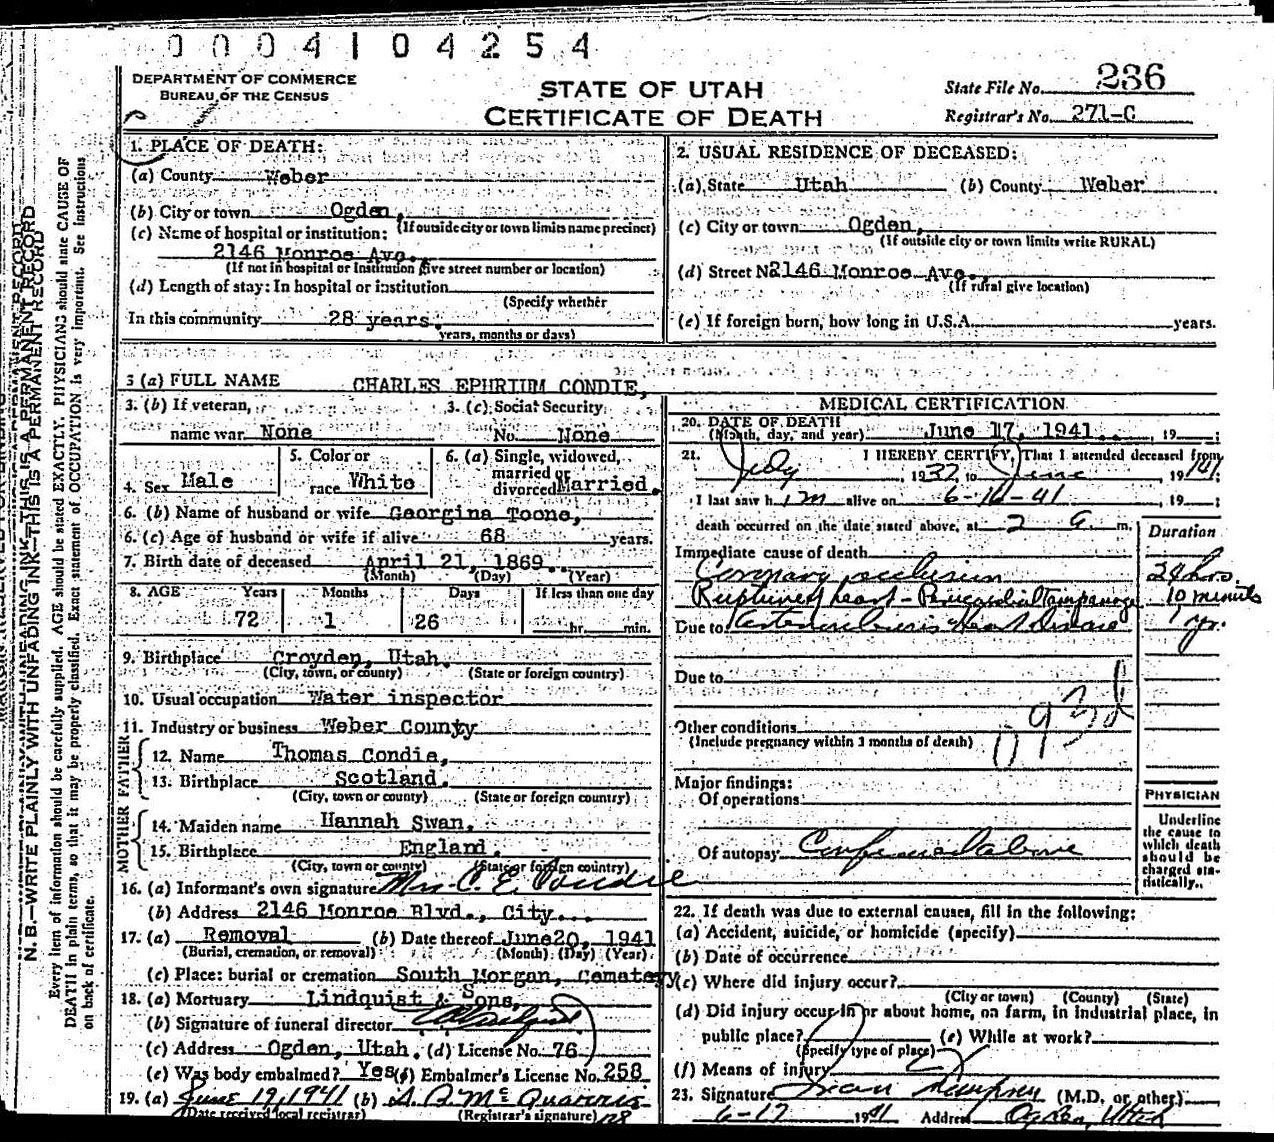 0004104254
DEPARTMENT OF COMMERCE
BUREAU OF THE CENSUS
STATE OF UTAH
CERTIFICATE OF DEATH
State File No. 236
Registrar's No. 271-C
N. B.—WRITE PLAINLY WITH UNFADING INK—THIS IS A PERMANENT RECORD
Every item of information should be carefully supplied. AGE should be stated EXACTLY. PHYSICIANS should state CAUSE OF
DEATH in plain terms, so that it may be properly classified. Exact statement of OCCUPATION is very important. See instructions
on back of certificate.
1. PLACE OF DEATH:
(a) County Weber
(b) City or town Ogden,
(If outside city or town limits name precinct)
(c) Name of hospital or institution:
2146 Monroe Ave.
(If not in hospital or institution give street number or location)
(d) Length of stay: In hospital or institution
(Specify whether
In this community 28 years.
years, months or days)
2. USUAL RESIDENCE OF DECEASED:
(a) State Utah (b) County Weber
(c) City or town Ogden,
(If outside city or town limits write RURAL)
(d) Street N 2146 Monroe Ave.
(If rural give location)
(e) If foreign born, how long in U.S.A. years.
3 (a) FULL NAME CHARLES EPHRIUM CONDIE,
3. (b) If veteran, 3. (c) Social Security
name war None No. None
4. Sex Male 5. Color or race White 6. (a) Single, widowed, married or divorced Married.
6. (b) Name of husband or wife Georgina Toone,
6. (c) Age of husband or wife if alive 68 years.
7. Birth date of deceased April 21, 1869.
(Month) (Day) (Year)
8. AGE Years Months Days If less than one day
72 1 26 hr. min.
9. Birthplace Croyden, Utah.
(City, town, or county) (State or foreign country)
10. Usual occupation Water inspector
11. Industry or business Weber County
FATHER
12. Name Thomas Condie,
13. Birthplace Scotland.
(City, town or county) (State or foreign country)
MOTHER
14. Maiden name Hannah Swan,
15. Birthplace England.
(City, town or county) (State or foreign country)
16. (a) Informant's own signature Mrs. C. E. Condie
(b) Address 2146 Monroe Blvd., City.
17. (a) Removal (b) Date thereof June 20, 1941
(Burial, cremation, or removal) (Month) (Day) (Year)
(c) Place: burial or cremation South Morgan, Cematery
18. (a) Mortuary Lindquist & Sons,
(b) Signature of funeral director
(c) Address Ogden, Utah. (d) License No. 76
(e) Was body embalmed? Yes (f) Embalmer's License No. 258
19. (a) June 19, 1941 (b)
(Date received local registrar) (Registrar's signature)
MEDICAL CERTIFICATION
20. DATE OF DEATH
(Month, day, and year) June 17, 1941. , 19 ;
21. I HEREBY CERTIFY, That I attended deceased from
July , 1937, to June , 1941.
I last saw him alive on 6-16-41 , 19 ;
death occurred on the date stated above, at 2 a m.
Duration
Immediate cause of death
Coronary occlusion 24 hrs.
Ruptured heart - Pericardial Tamponage 10 minuts
Due to Arteriosclerosis heart disease 1 yr.
Due to
093d
Other conditions
(Include pregnancy within 3 months of death)
Major findings:
Of operations
Of autopsy Confirmed above
PHYSICIAN
Underline
the cause to
which death
should be
charged sta-
tistically.
22. If death was due to external causes, fill in the following:
(a) Accident, suicide, or homicide (specify)
(b) Date of occurrence
(c) Where did injury occur?
(City or town) (County) (State)
(d) Did injury occur in or about home, on farm, in industrial place, in
public place? (e) While at work?
(Specify type of place)
(f) Means of injury
23. Signature (M.D. or other)
6-17 1941 Address Ogden, Utah